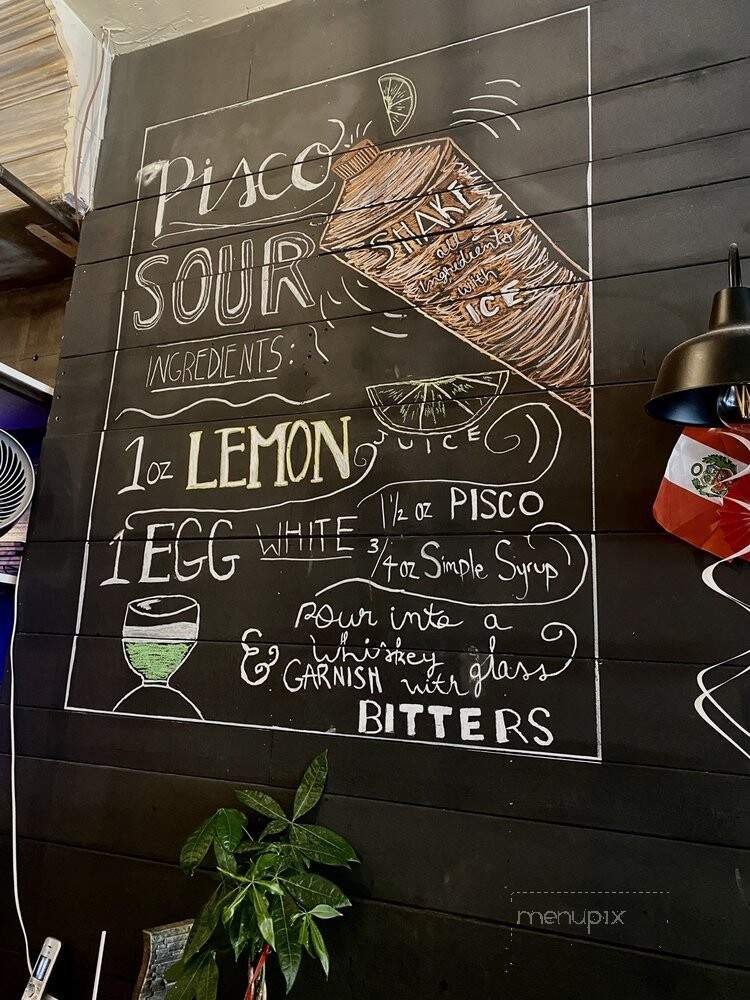 Pisco
SOUR
SHAKE
all
ingredients
with
ICE
INGREDIENTS:
1 oz LEMON
JUICE
1 EGG WHITE
1 1/2 oz PISCO
3/4 oz Simple Syrup
Pour into a
whiskey glass
& GARNISH with
BITTERS
menupix